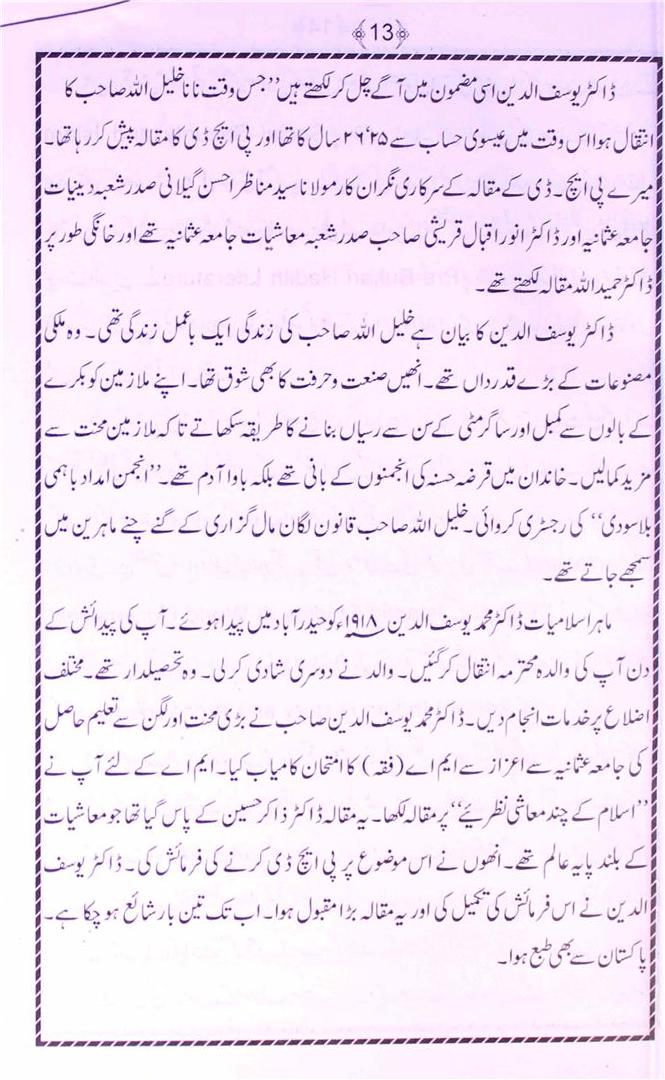 13
ڈاکٹر یوسف الدین اسی مضمون میں آگے چل کر لکھتے ہیں ’’جس وقت نانا خلیل اللہ صاحب کا
انتقال ہوا اس وقت میں عیسوی حساب سے ۲۵‘۲۶ سال کا تھا اور پی ایچ ڈی کا مقالہ پیش کر رہا تھا۔
میرے پی ایچ۔ ڈی کے مقالہ کے سرکاری نگران کار مولانا سید مناظر احسن گیلانی صدر شعبہ دینیات
جامعہ عثمانیہ اور ڈاکٹر انور اقبال قریشی صاحب صدر شعبہ معاشیات جامعہ عثمانیہ تھے اور خانگی طور پر
ڈاکٹر حمید اللہ مقالہ لکھتے تھے۔
ڈاکٹر یوسف الدین کا بیان ہے خلیل اللہ صاحب کی زندگی ایک باعمل زندگی تھی۔ وہ ملکی
مصنوعات کے بڑے قدرداں تھے۔ انھیں صنعت و حرفت کا بھی شوق تھا۔ اپنے ملازمین کو بکرے
کے بالوں سے کمبل اور ساگر مٹی کے سن سے رسیاں بنانے کا طریقہ سکھاتے تا کہ ملازمین محنت سے
مزید کمالیں۔ خاندان میں قرضہ حسنہ کی انجمنوں کے بانی تھے بلکہ باوا آدم تھے۔ ’’انجمن امداد باہمی
بلاسودی‘‘ کی رجسٹری کروائی۔ خلیل اللہ صاحب قانون لگان مال گزاری کے گنے چنے ماہرین میں
سمجھے جاتے تھے۔
ماہر اسلامیات ڈاکٹر محمد یوسف الدین ۱۹۱۸ء کو حیدرآباد میں پیدا ہوئے۔ آپ کی پیدائش کے
دن آپ کی والدہ محترمہ انتقال کر گئیں۔ والد نے دوسری شادی کرلی۔ وہ تحصیلدار تھے۔ مختلف
اضلاع پر خدمات انجام دیں۔ ڈاکٹر محمد یوسف الدین صاحب نے بڑی محنت اور لگن سے تعلیم حاصل
کی جامعہ عثمانیہ سے اعزاز سے ایم اے (فقہ) کا امتحان کامیاب کیا۔ ایم اے کے لئے آپ نے
’’اسلام کے چند معاشی نظرئیے‘‘ پر مقالہ لکھا۔ یہ مقالہ ڈاکٹر ذاکر حسین کے پاس گیا تھا جو معاشیات
کے بلند پایہ عالم تھے۔ انھوں نے اس موضوع پر پی ایچ ڈی کرنے کی فرمائش کی۔ ڈاکٹر یوسف
الدین نے اس فرمائش کی تکمیل کی اور یہ مقالہ بڑا مقبول ہوا۔ اب تک تین بار شائع ہو چکا ہے۔
پاکستان سے بھی طبع ہوا۔